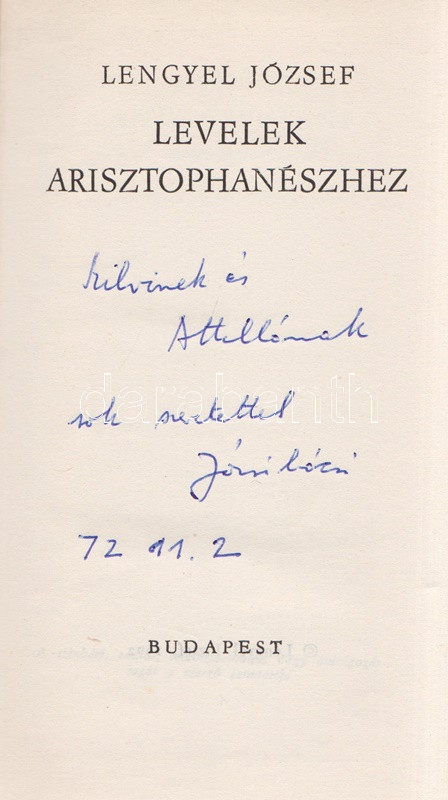 LENGYEL JÓZSEF
LEVELEK
ARISZTOPHANÉSZHEZ
Szilvinek és
Attillának
darabanth
sok szeretettel
Józsi bácsi
72 11.2
BUDAPEST